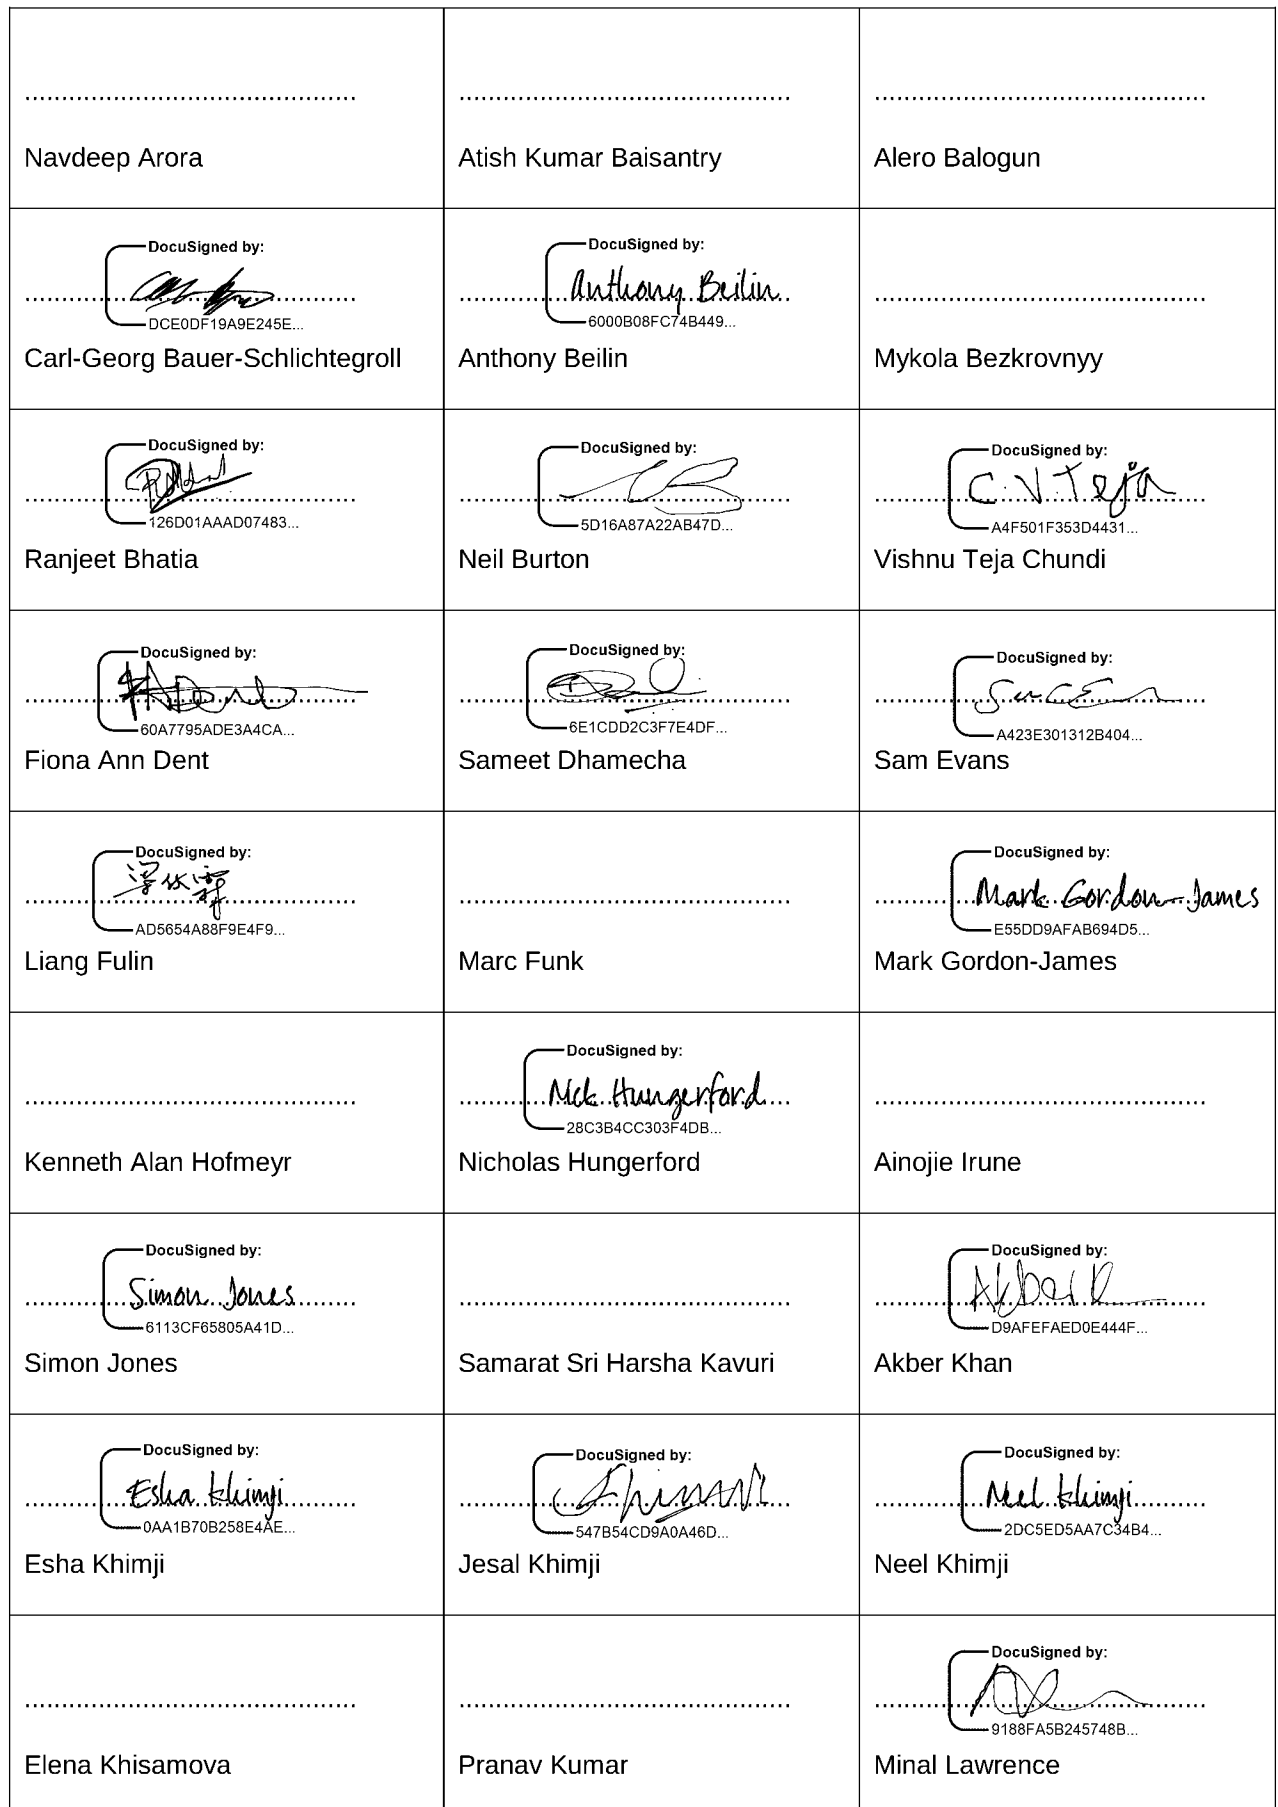 Navdeep Arora
Atish Kumar Baisantry
Alero Balogun
DocuSigned by:
DCE0DF19A9E245E...
Carl-Georg Bauer-Schlichtegroll
DocuSigned by:
Anthony Beilin
6000B08FC74B449...
Anthony Beilin
Mykola Bezkrovnyy
DocuSigned by:
126D01AAAD07483...
Ranjeet Bhatia
DocuSigned by:
5D16A87A22AB47D...
Neil Burton
DocuSigned by:
C.V.Teja
A4F501F353D4431...
Vishnu Teja Chundi
DocuSigned by:
60A7795ADE3A4CA...
Fiona Ann Dent
DocuSigned by:
6E1CDD2C3F7E4DF...
Sameet Dhamecha
DocuSigned by:
A423E301312B404...
Sam Evans
DocuSigned by:
AD5654A88F9E4F9...
Liang Fulin
Marc Funk
DocuSigned by:
Mark Gordon-James
E55DD9AFAB694D5...
Mark Gordon-James
Kenneth Alan Hofmeyr
DocuSigned by:
Nick Hungerford
28C3B4CC303F4DB...
Nicholas Hungerford
Ainojie Irune
DocuSigned by:
Simon Jones
6113CF65805A41D...
Simon Jones
Samarat Sri Harsha Kavuri
DocuSigned by:
D9AFEFAED0E444F...
Akber Khan
DocuSigned by:
Esha Khimji
0AA1B70B258E4AE...
Esha Khimji
DocuSigned by:
547B54CD9A0A46D...
Jesal Khimji
DocuSigned by:
Neel Khimji
2DC5ED5AA7C34B4...
Neel Khimji
Elena Khisamova
Pranav Kumar
DocuSigned by:
9188FA5B245748B...
Minal Lawrence